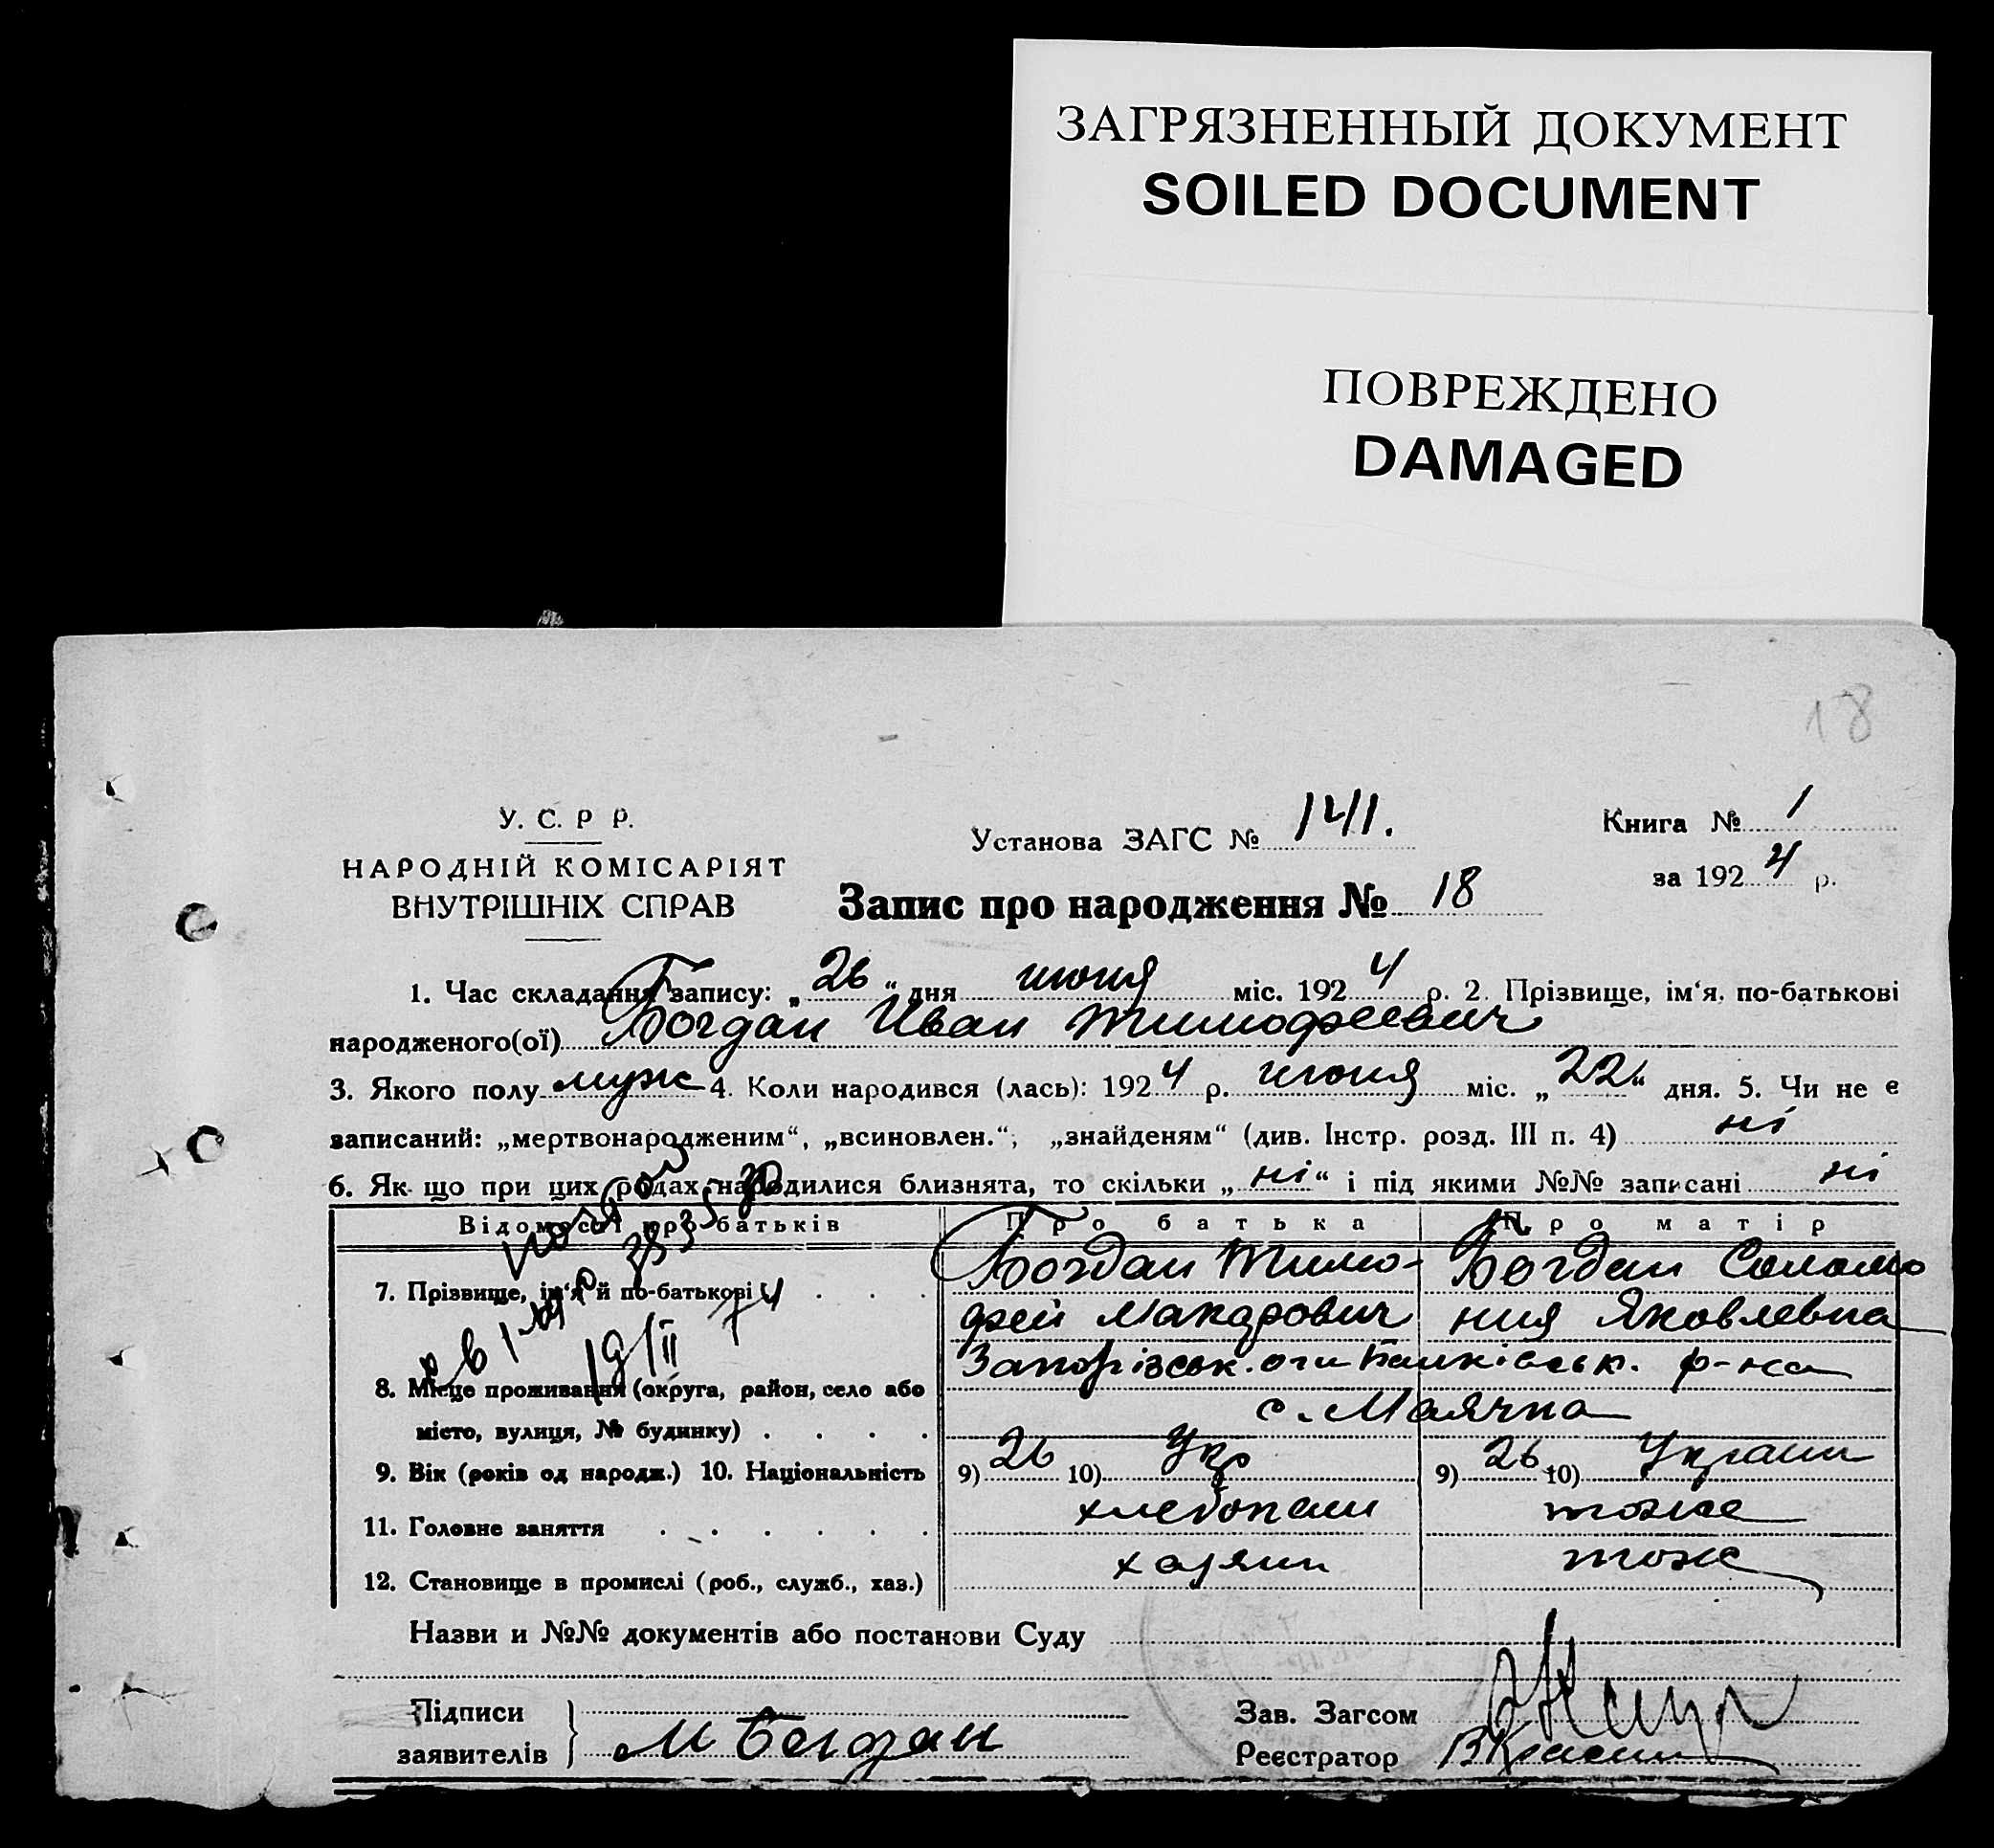 ЗАГРЯЗНЕННЫЙ ДОКУМЕНТ
SOILED DOCUMENT
ПОВРЕЖДЕНО
DAMAGED
18
У. С. Р Р.
НАРОДНІЙ КОМІСАРІЯТ
ВНУТРІШНІХ СПРАВ
Установа ЗАГС № 141.
Книга № 1
за 1924 р.
Запис про народження № 18
1. Час складання запису: „26“ дня июня міс. 1924 р. 2. Прізвище, ім‘я, по-батькові
народженого(ої) Богдан Иван Тимофеевич
3. Якого полу муж 4. Коли народився (лась): 1924 р. июня міс. „22“ дня. 5. Чи не є
записаний: „мертвонародженим“, „всиновлен.“, „знайденям“ (див. Інстр. розд. III п. 4) ні
6. Як що при цих родах народилися близнята, то скільки „ні“ і під якими №№ записані ні
Відомості про батьків Про батька Про матір
7. Прізвище, ім‘я й по-батькові Богдан Тимо- Богдан Соломо
фей Макарович ния Яковлевна
19/II 74
8. Місце проживання (округа, район, село або Запорізськ. р-на
місто, вулиця, № будинку) с. Маячка
9. Вік (років од народж.) 10. Національність 9) 26 10) Укр 9) 26 10) Украин
11. Головне заняття хлебопаш тоже
12. Становище в промислі (роб., служб., хаз.) хазяин тоже
Назви и №№ документів або постанови Суду
Підписи
заявителів М Богдан
Зав. Загсом
Реєстратор